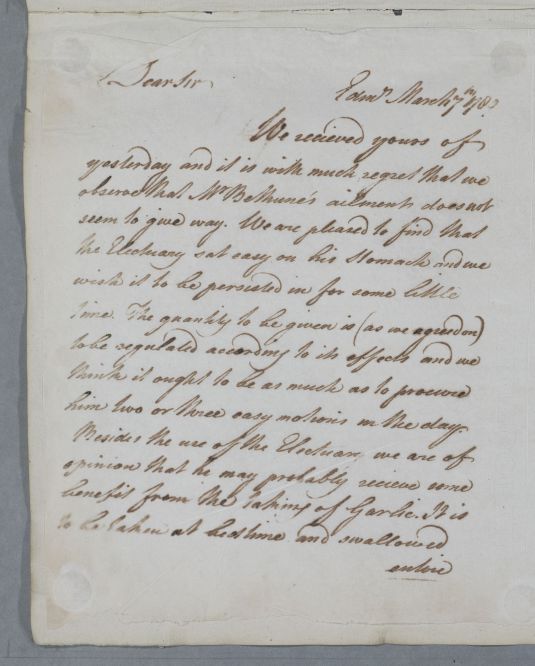 Dear Sir
Edinr March 7th 178
We recieved yours of
yesterday and it is with much regret that we
observe that Mr Bethune's ailments does not
seem to give way. We are pleased to find that
the Electuary sat easy on his stomach and we
wish it to be persisted in for some little
time. The quantity to be given is (as we agreed on)
to be regulated according to its effects and we
think it ought to be as much as to procure
him two or three easy motions in the day.
Besides the use of the Electuary we are of
opinion that he may probably recieve some
benefit from the taking of Garlic. It is
to be taken at bedtime and swallowed
entire